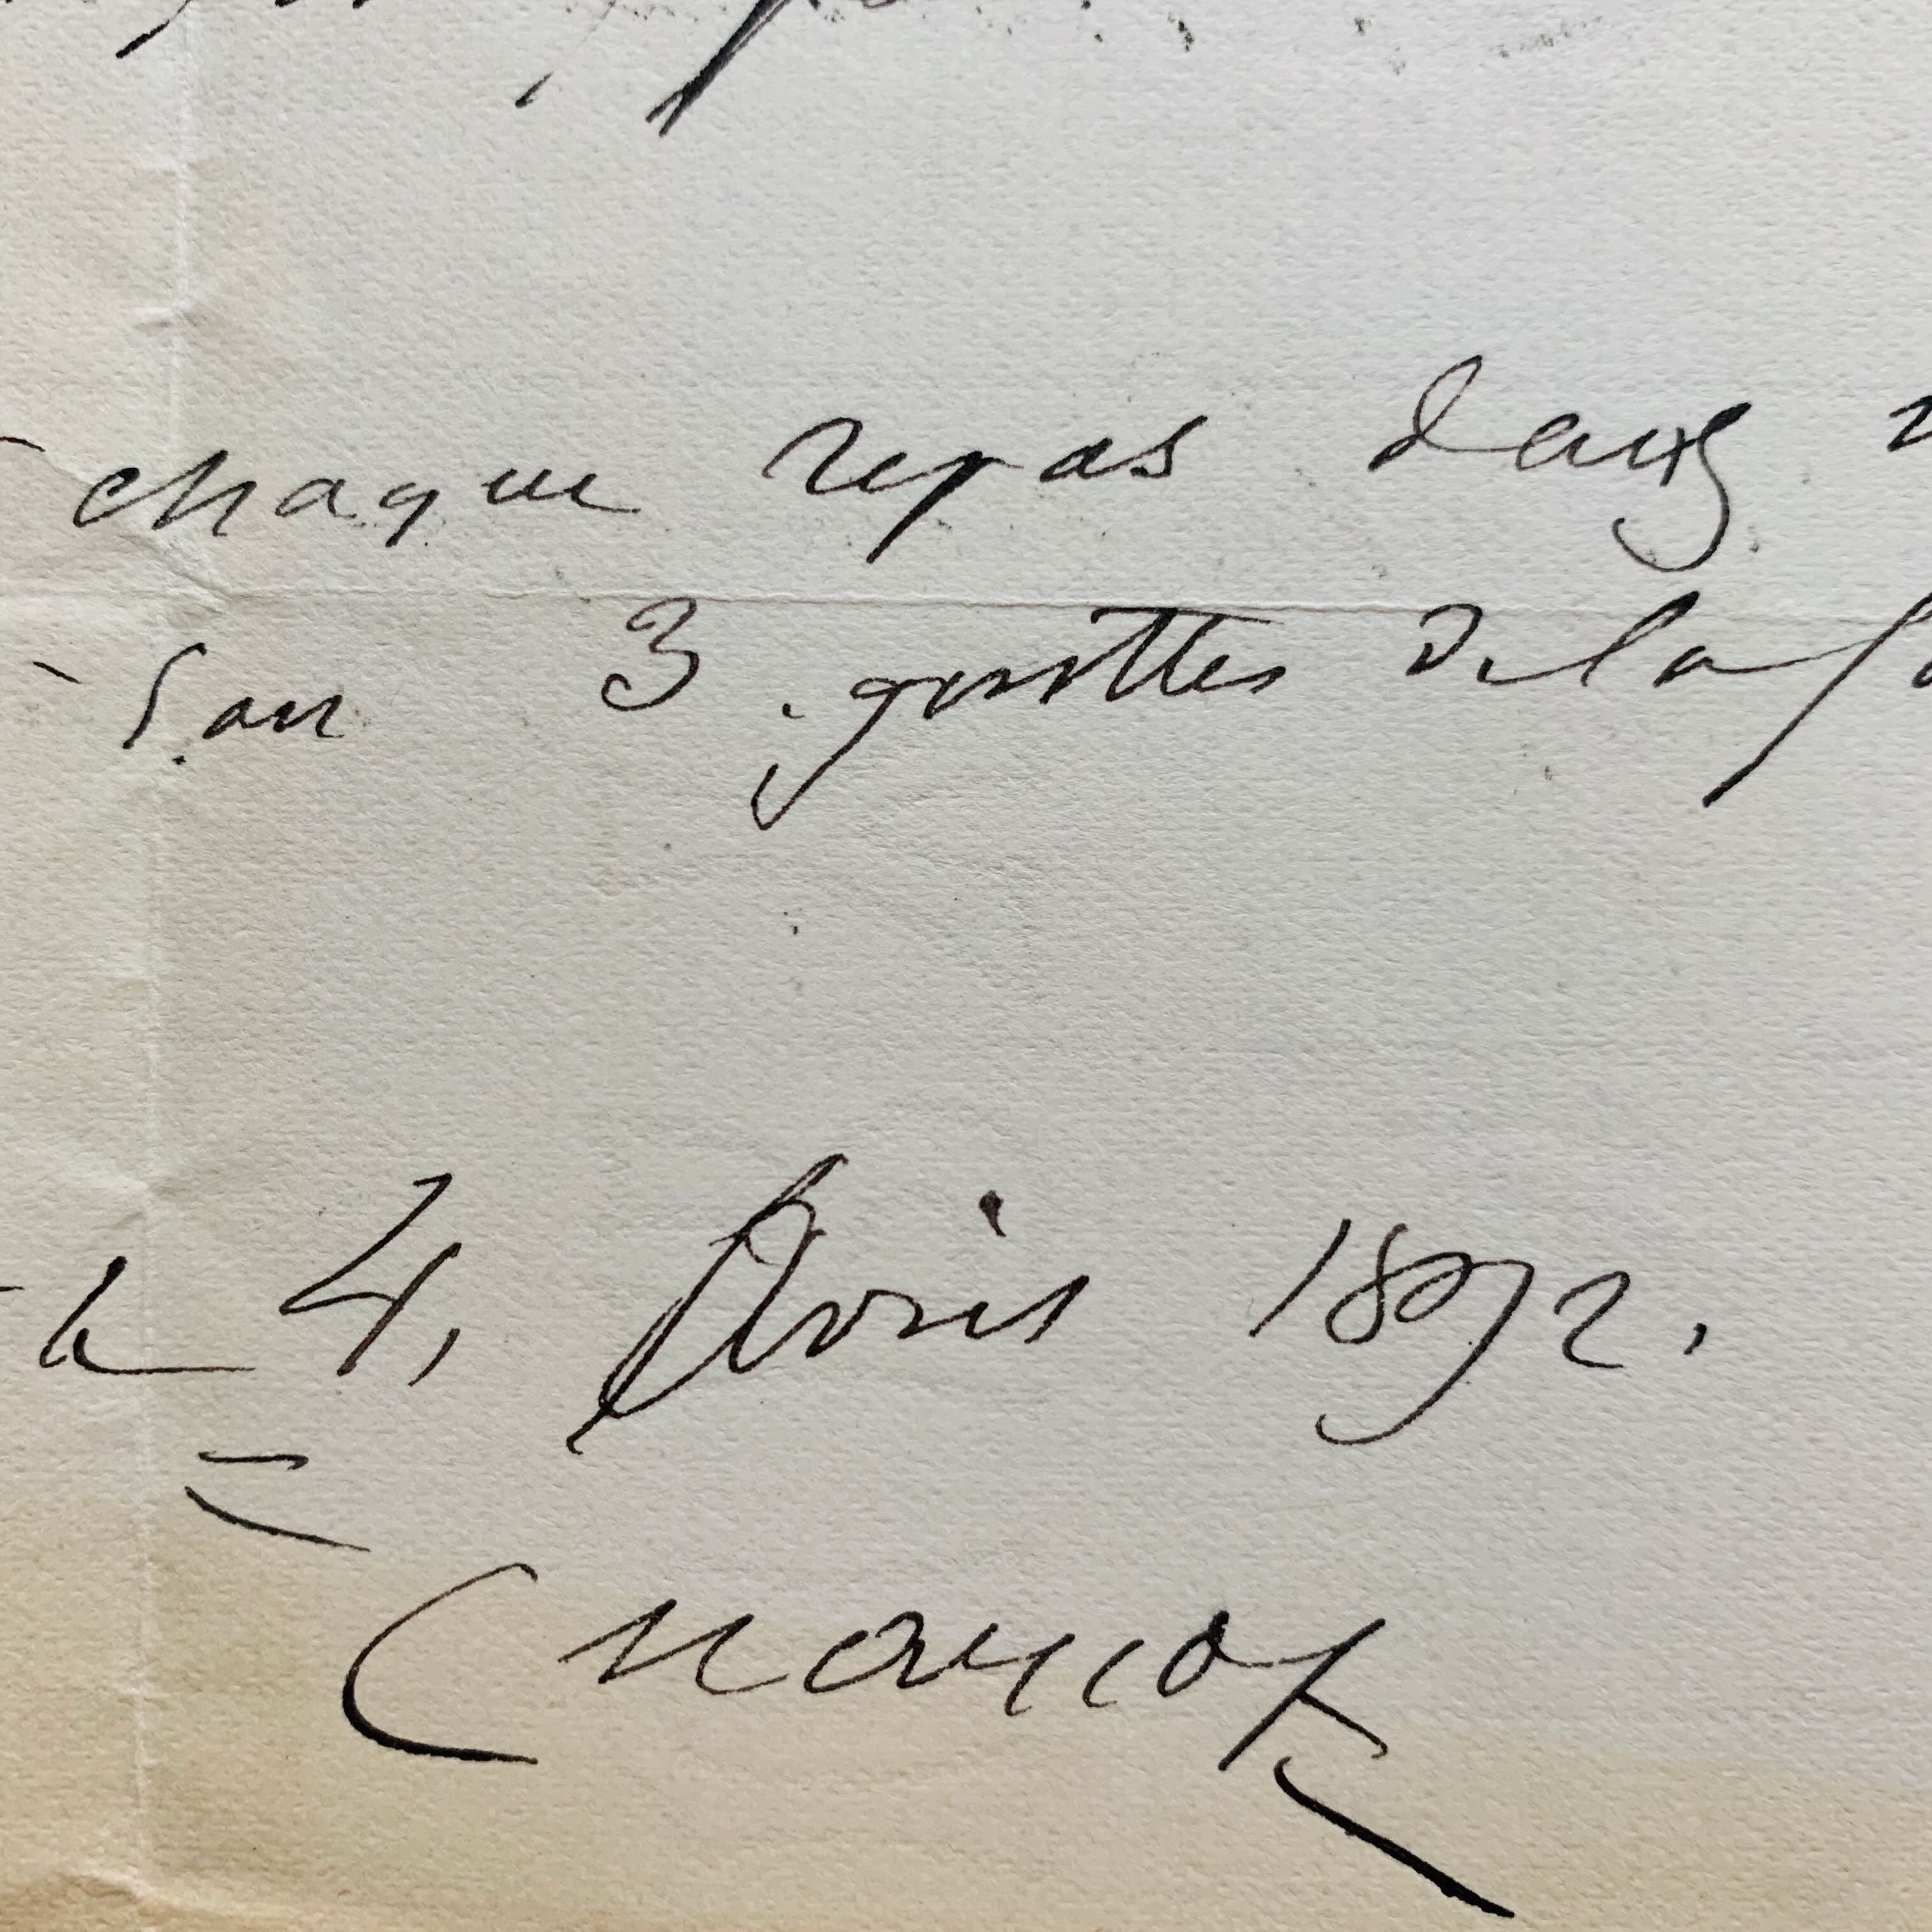 chaque repas dans
3 gouttes de la
le 4, Avril 1892.
Charcot